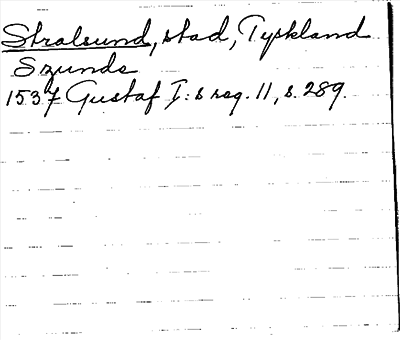 Stralsund, stad, Tyskland
Szunds
1537 Gustaf I:s reg. 11, s. 289.